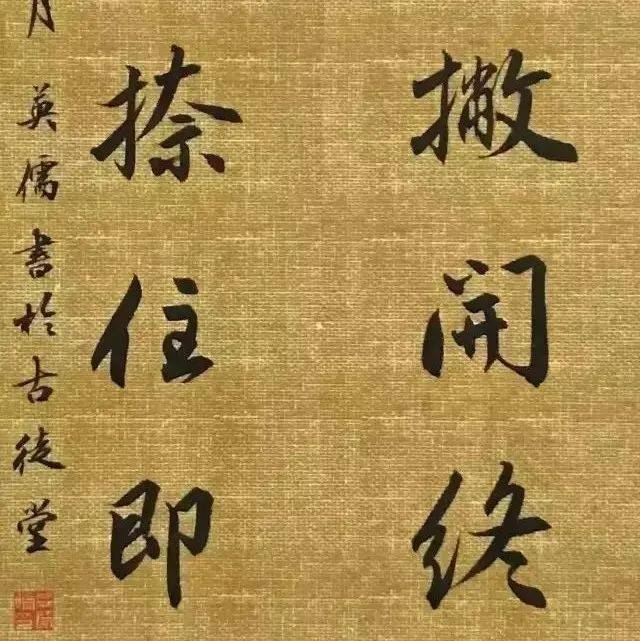 撇開終
捺住即
月英儒書於古徒堂